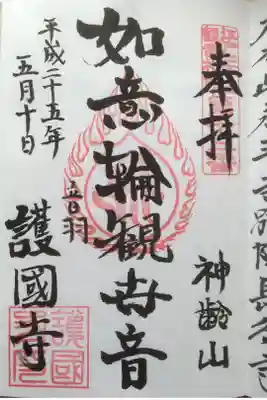 奉拝
神齢山
如意輪観世音
音羽
護國寺
平成二十五年
五月十日
護國